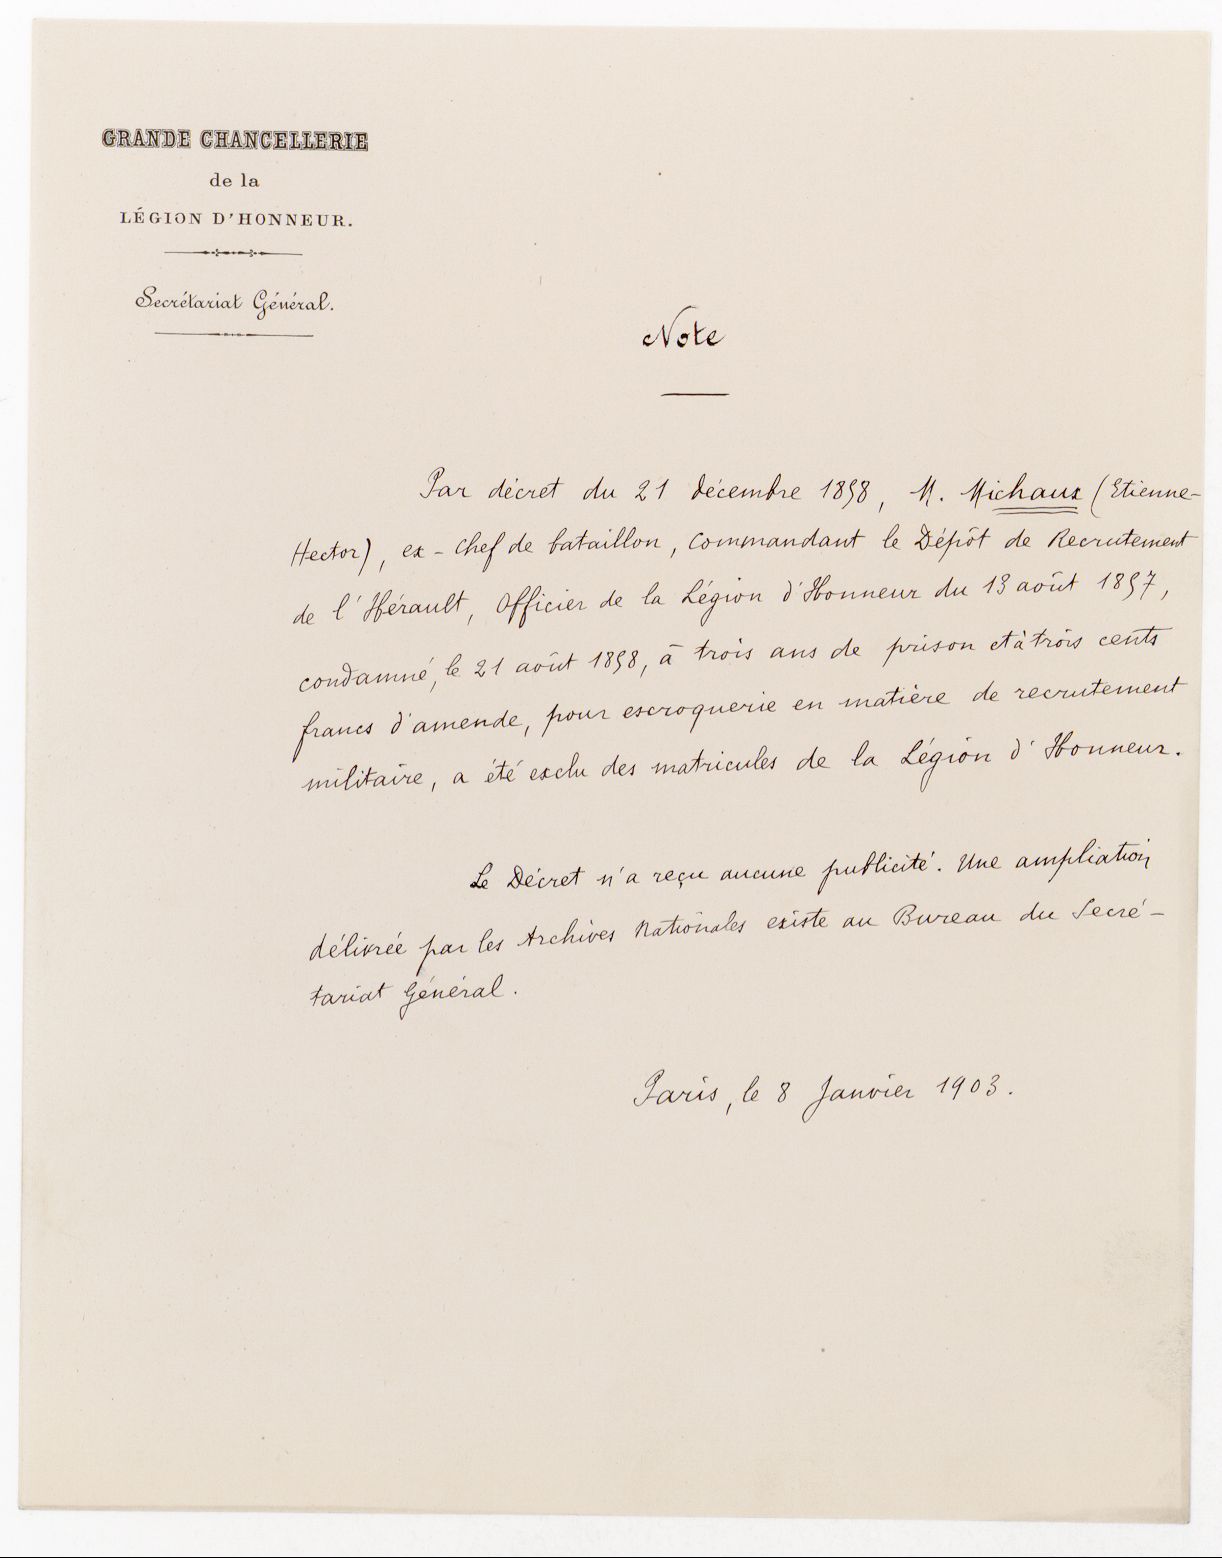 GRANDE CHANCELLERIE
de la
LÉGION D'HONNEUR.
Secrétariat Général.
Note
Par décret du 21 décembre 1858, M. Michaux (Etienne-
Hector), ex-Chef de bataillon, commandant le Dépôt de Recrutement
de l'Hérault, Officier de la Légion d'Honneur du 13 août 1857,
condamné, le 21 août 1858, à trois ans de prison et à trois cents
francs d'amende, pour escroquerie en matière de recrutement
militaire, a été exclu des matricules de la Légion d'Honneur.
Le Décret n'a reçu aucune publicité. Une ampliation
délivrée par les Archives Nationales existe au Bureau du Secré-
tariat Général.
Paris, le 8 Janvier 1903.